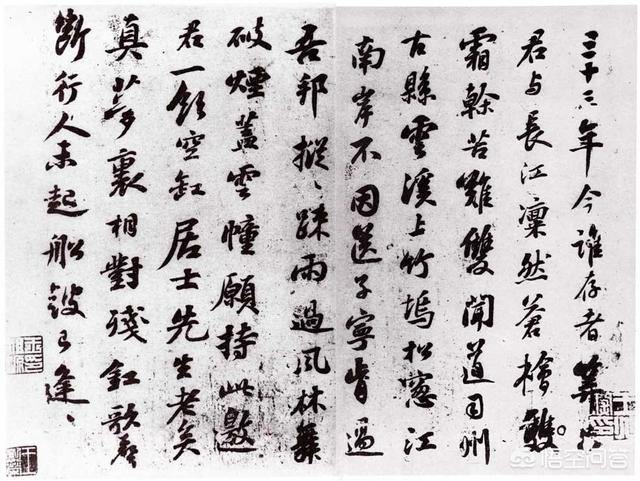 三十三年今誰存者算只
君与長江凜然蒼檜雙
霜幹苦難雙聞道司州
古縣雲溪上竹塢松窓江
南岸不因送子寧肯過
吾邦摐〻踈雨過風林舞
破煙蓋雲幢願持此邀
君一飲空缸居士先生老矣
真夢裏相對殘釭歌聲
斷行人未起船鼓已逢〻
悟空问答